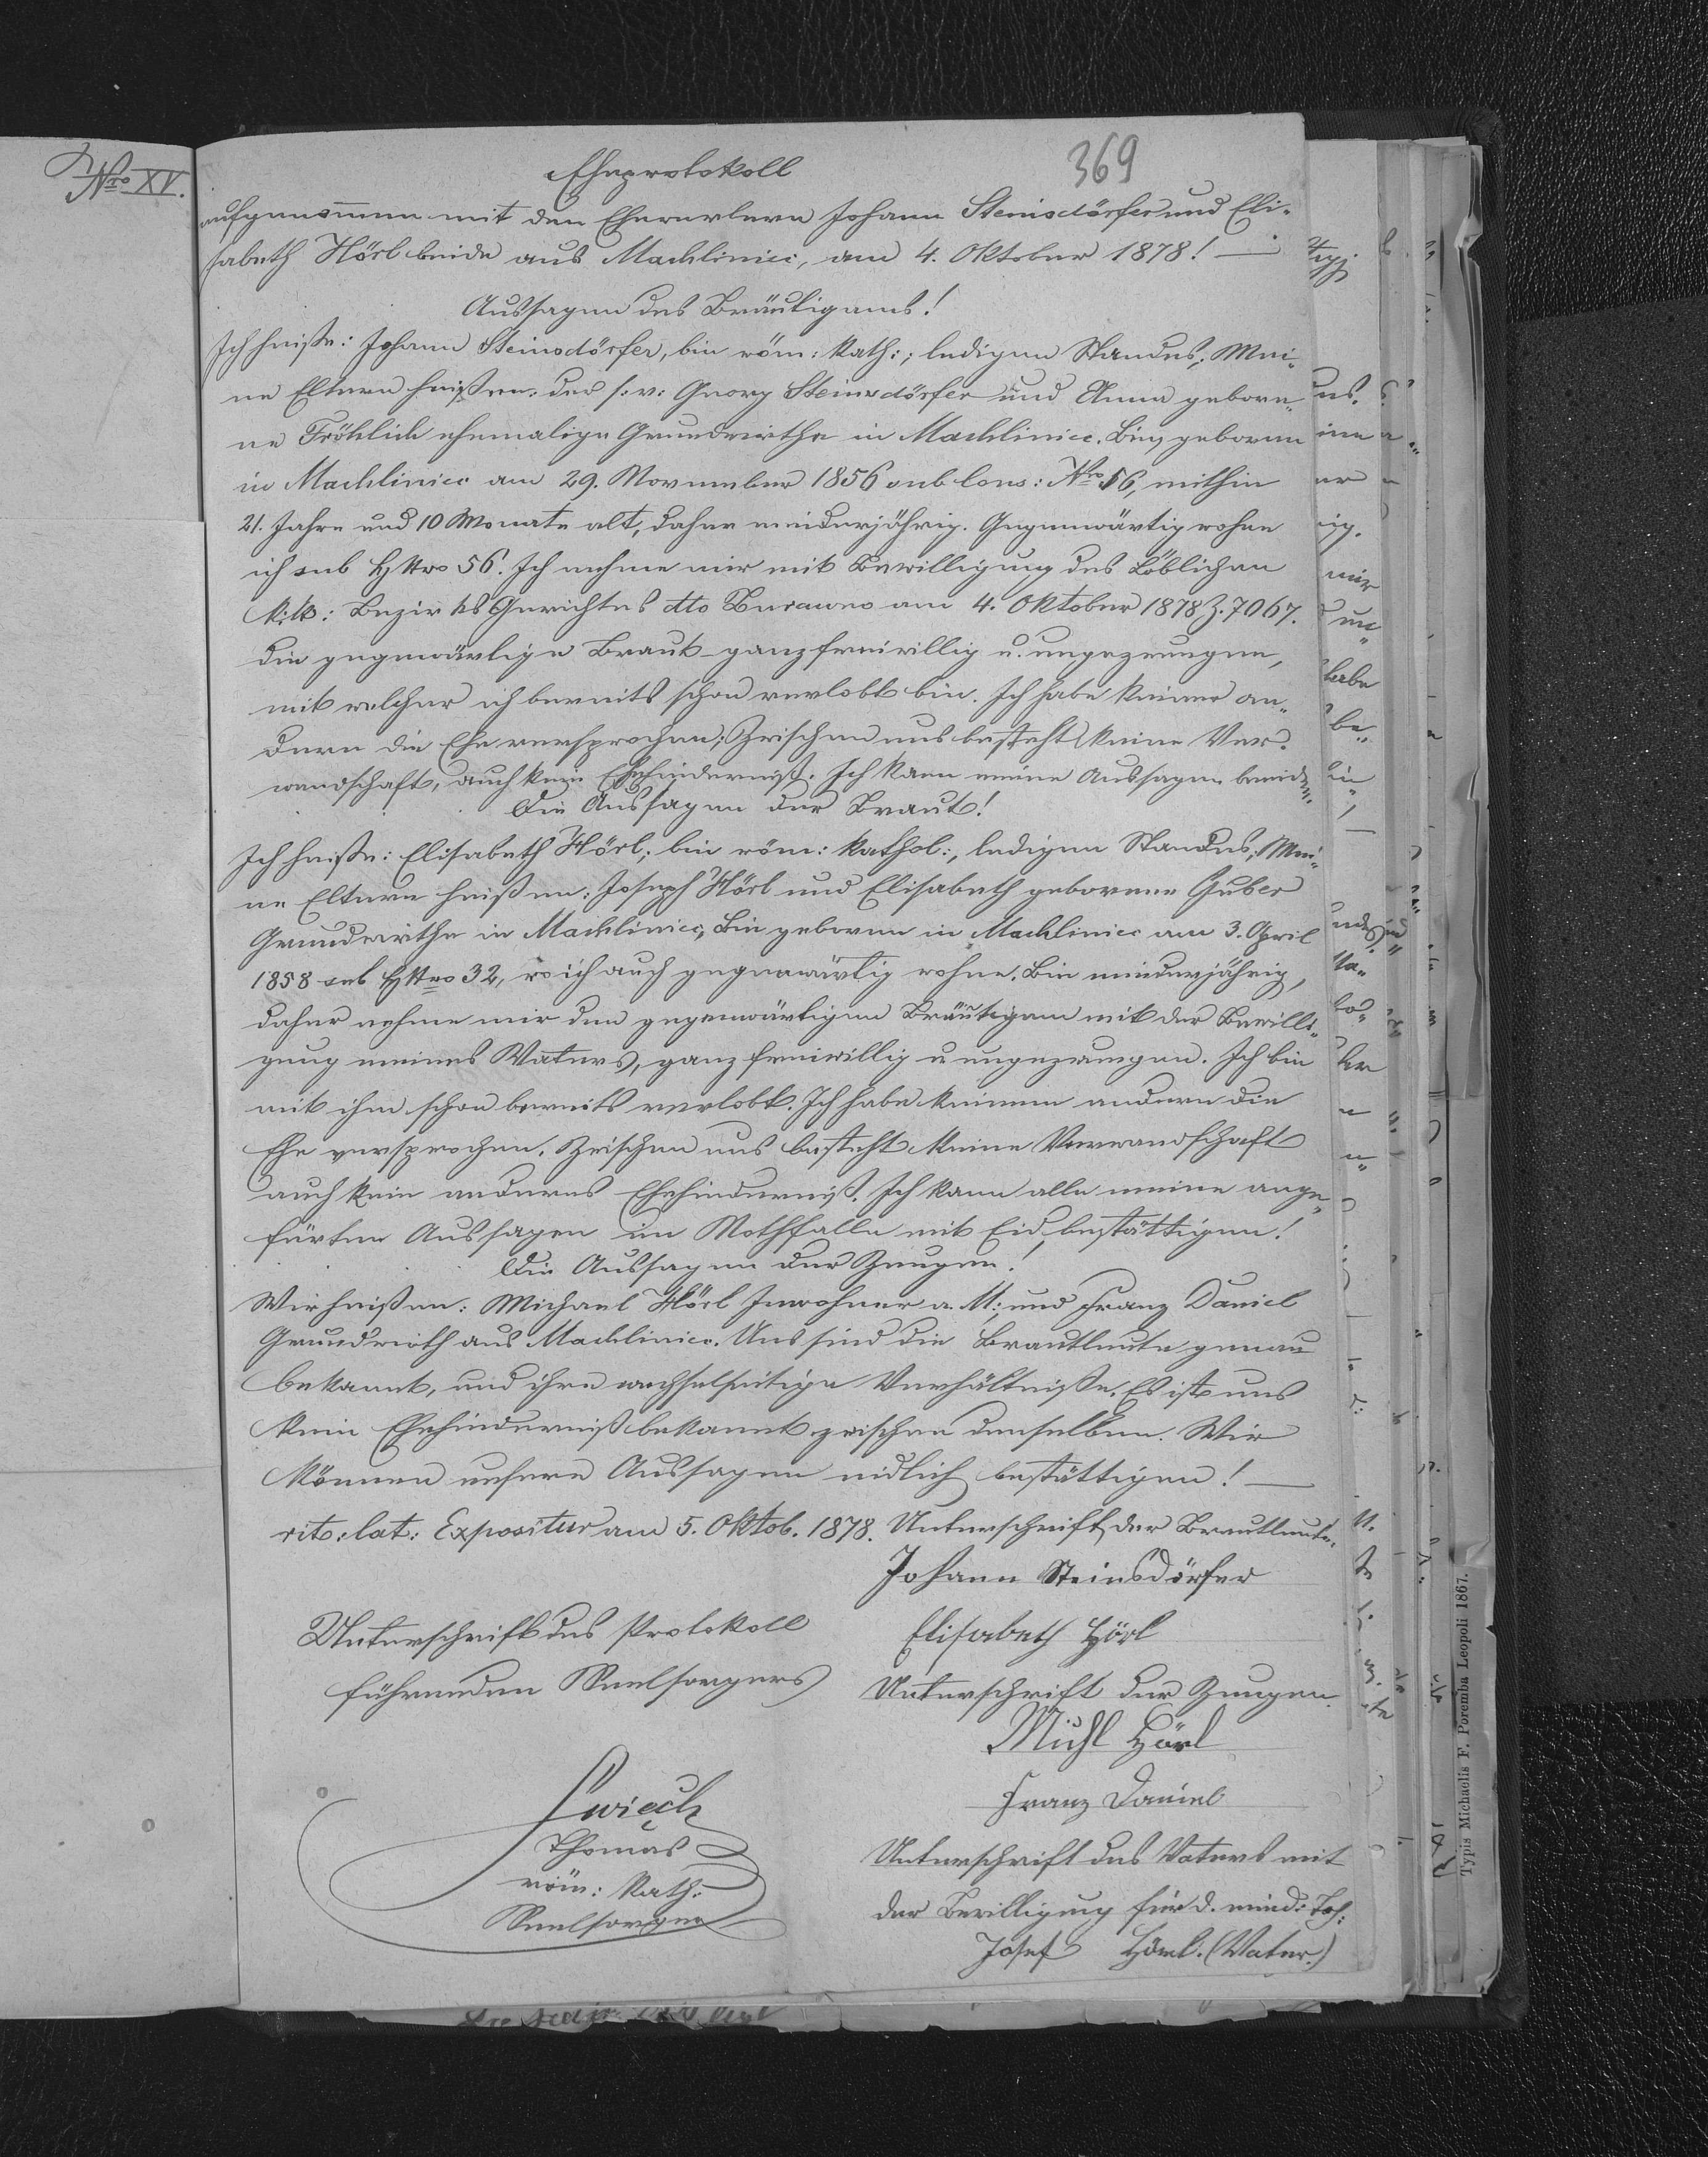 Nro XV.
369
Eheprotokoll
aufgenommen mit den Ehewerbern Johann Steinsdörfer und Eli-
sabeth Hörl beide aus Machliniec, am 4. Oktober 1878! —
Aussagen des Bräutigams!
Ich heiße: Johann Steinsdörfer, bin röm: kath:; ledigen Standes; Mei-
ne Eltern heißen: der s: v: Georg Steinsdörfer und Anna gebore-
ne Fröhlich ehemalige Grundwirthe in Machliniec. Bin geboren
in Machliniec am 29. November 1856 sub Cons: Nro 56, mithin
21. Jahre und 10 Monate alt, daher minderjährig. Gegenwärtig wohne
ich sub HNro 56. Ich nehme mir mit Bewilligung des Löblichen
k: k: Bezirks Gerichtes dto Żurawno am 4. Oktober 1878 Z. 7067.
die gegenwärtige Braut ganz freiwillig u. ungezwungen,
mit welcher ich bereits schon verlobt bin. Ich habe keiner an-
dern die Ehe versprochen; Zwischen uns besteht keine Ver-
wandschaft, auch kein Ehehinderniß. Ich kann meine Aussagen beeiden.
Die Aussagen der Braut!
Ich heiße: Elisabeth Hörl; bin röm: kathol:, ledigen Standes; Mei-
ne Eltern heißen: Joseph Hörl und Elisabeth geborene Guber
Grundwirthe in Machliniec, Bin geboren in Machliniec am 3. April
1858 sub HNro 32, wo ich auch gegenwärtig wohne. Bin minderjährig,
daher nehme mir den gegenwärtigen Bräutigam mit der Bewilli-
gung meines Vaters, ganz freiwillig u ungezwungen. Ich bin
mit ihm schon bereits verlobt. Ich habe keinem andern die
Ehe versprochen. Zwischen uns besteht keine Verwandschaft
auch kein anderes Ehehinderniß. Ich kann alle meine ange-
fürten Aussagen im Nothfalle mit Eid bestättigen!
Die Aussagen der Zeugen!
Wir heißen: Michael Hörl Inwohner a. M: und Franz Daniel
Grundwirth aus Machliniec. Uns sind die Brautleute genau
bekannt, und ihre wechselseitige Verhältniße. Es ist uns
kein Ehehinderniß bekannt zwischen denselben. Wir
können unsere Aussagen eidlich bestättigen! —
rit: lat: Expositur am 5. Oktob. 1878. Unterschrift der Brautleute.
Johann Steinsdörfer
Unterschrift des Protokoll
Elisabeth Hörl
führenden Seelsorgers
Unterschrift der Zeugen.
Michl Hörl
Franz Daniel
Świech
Thomas
röm: kath:
Seelsorger
Unterschrift des Vaters mit
der Bewilligung für d. mind: Toch:
Josef Hörl. (Vater.)
Typis Michaelis F. Poremba Leopoli 1867.